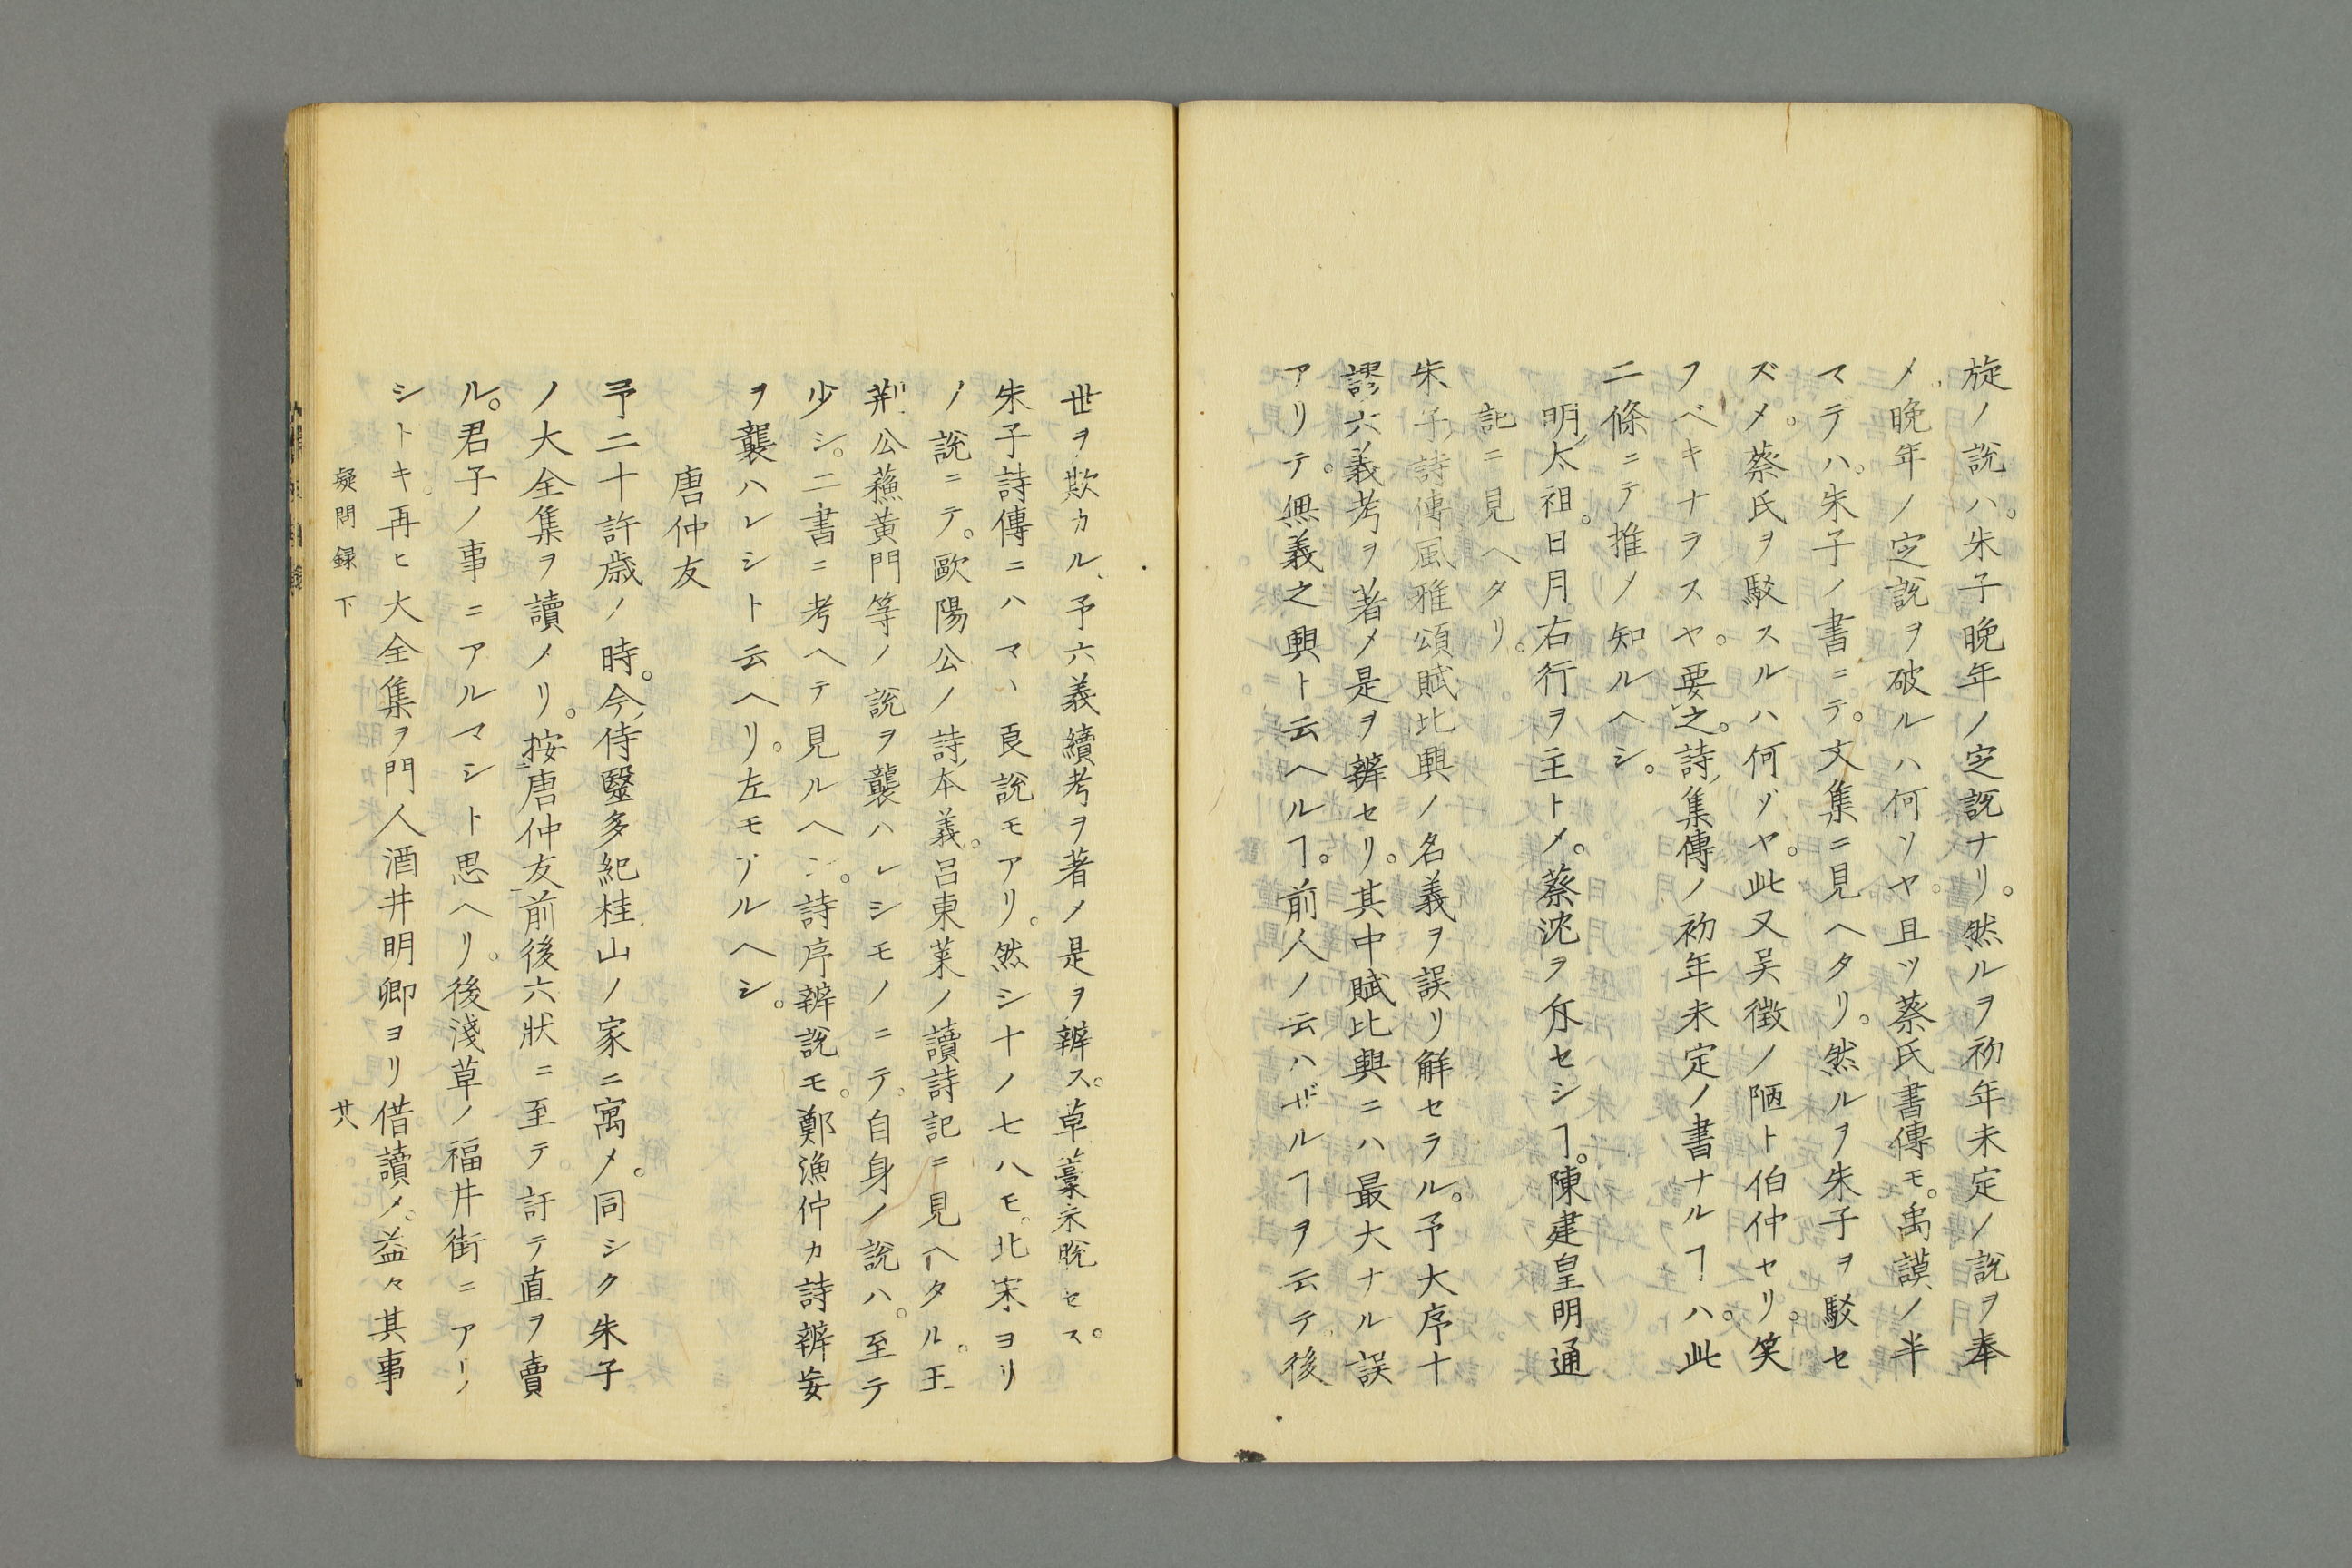 旋ノ說ハ。朱子晩年ノ定說ナリ。然ルヲ初年未定ノ說ヲ奉
メ、晩年ノ定說ヲ破ルハ何ソヤ。且ツ蔡氏書傳モ。禹謨ノ半
マテハ。朱子ノ書ニテ。文集ニ見ヘタリ。然ルヲ朱子ヲ駁セ
ズメ。蔡氏ヲ駁スルハ何ゾヤ。此又吴徴ノ陋ト伯仲セリ。笑
フベキナラスヤ。要之。詩集傳ノ初年未定ノ書ナルヿハ。此
二條ニテ推ノ知ルヘシ。
明太祖。日月右行ヲ主トメ。蔡沈ヲ斥セシヿ。陳建皇明通
記ニ見ヘタリ。
朱子詩傳風雅頌賦比興ノ名義ヲ誤リ解セラル。予大序十
謬六義考ヲ著メ是ヲ辨セリ。其中賦比興ニハ最大ナル誤
アリテ。無義之興ト云ヘルヿ。前人ノ云ハザルヿヲ云テ後
世ヲ欺カル、予六義續考ヲ著メ是ヲ辨ス。草藁未脫セス。
朱子詩傳ニハマヽ良說モアリ。然シ十ノ七八モ。北宋ヨリ
ノ說ニテ。歐陽公ノ詩本義。呂東莱ノ讀詩記ニ見ヘタル。王
荆公蘓黃門等ノ說ヲ襲ハレシモノニテ。自身ノ說ハ。至テ
少シ。二書ニ考ヘテ見ルヘシ。詩序辨說モ。鄭漁仲カ詩辨妄
ヲ襲ハレシト云ヘリ。左モアルヘシ。
唐仲友
予二十許歳ノ時。今侍毉多紀桂山ノ家ニ寓メ。同シク朱子
ノ大全集ヲ讀メリ。按唐仲友前後六狀ニ至テ訐テ直ヲ賣
ル。君子ノ事ニアルマシト思ヘリ。後淺草ノ福井街ニアリ
シトキ。再ヒ大全集ヲ門人酒井明卿ヨリ借讀メ。益々其事
疑問録 下 廿八